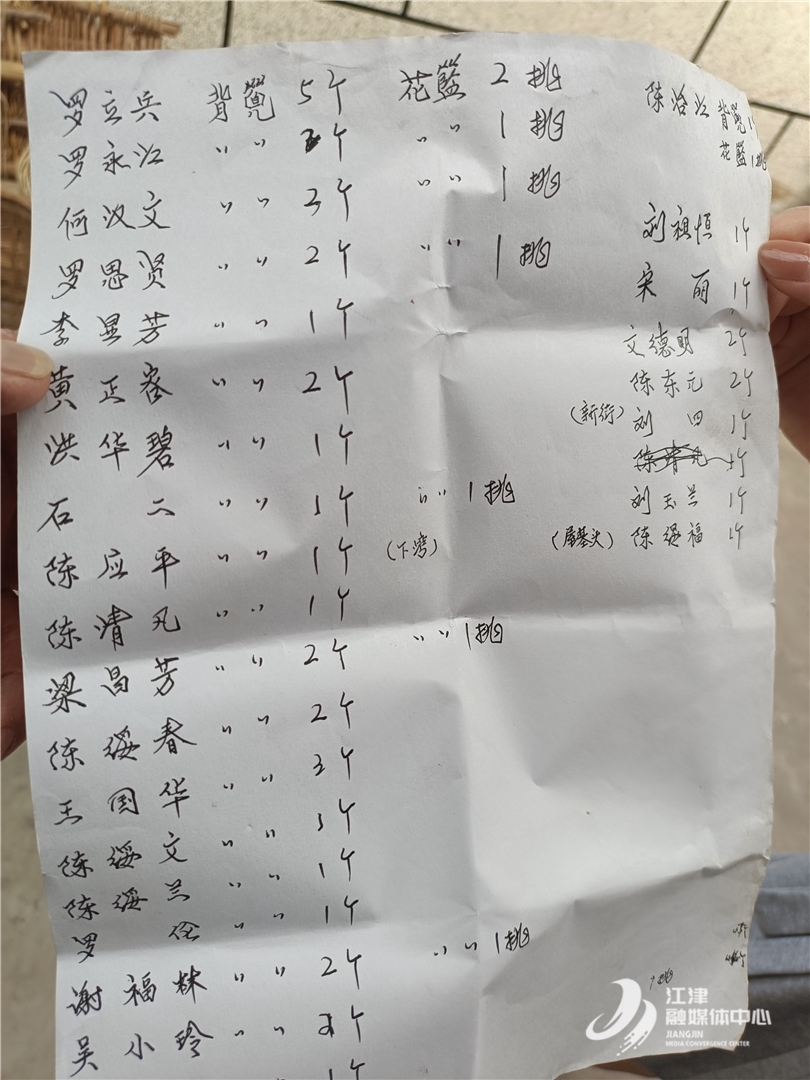 罗立兵 背篼 5个 花篮 2挑
罗永江 〃 〃 个 〃 〃 1挑
何汝文 〃 〃 3个 〃 〃 1挑
罗思贤 〃 〃 2个 〃 〃 1挑
李显芳 〃 〃 1个
黄正容 〃 〃 2个
洪华碧 〃 〃 1个
石二 〃 〃 1个 〃 〃 1挑
陈应平 〃 〃 1个 (下湾)
陈清凡 〃 〃 1个
梁昌芳 〃 〃 2个 〃 〃 1挑
陈绥春 〃 〃 2个
王国华 〃 〃 3个
陈绥文 〃 〃 3个
陈绥兰 〃 〃 1个
罗 〃 〃 1个
谢福林 〃 〃 2个 〃 〃 1挑
吴小玲 〃 〃 个
1个
陈治江 背篼1
花篮1挑
刘祖恒 1个
宋丽 1个
文德明 2个
陈东元 2个
(新街) 刘四 1个
1个
刘玉兰 1个
(屋基头) 陈绥福 1个
江津
融媒体中心
JIANGJIN
MEDIA CONVERGENCE CENTER